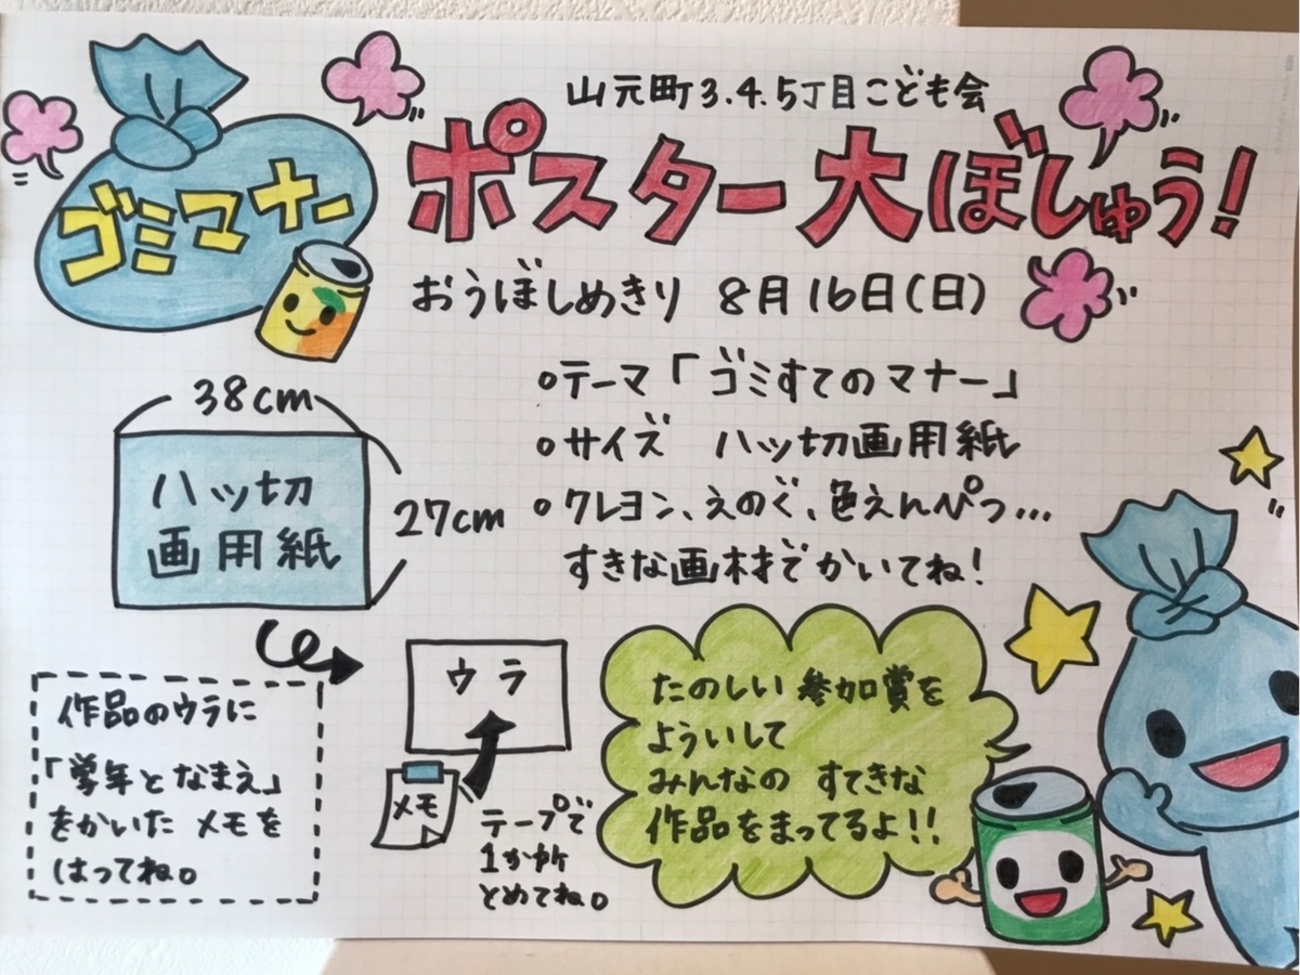 山元町3.4.5丁目こども会
ゴミマナー
ポスター大ぼしゅう!
おうぼしめきり 8月16日(日)
38cm
ハッ切
画用紙
27cm
テーマ「ゴミすてのマナー」
サイズ ハッ切画用紙
クレヨン、えのぐ、色えんぴつ…
すきな画材でかいてね!
作品のウラに
「学年となまえ」
をかいた メモを
はってね。
ウラ
メモ
テープで
1か所
とめてね。
たのしい 参加賞を
よういして
みんなの すてきな
作品をまってるよ!!